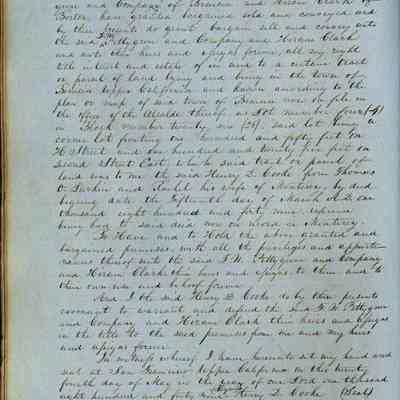 and Company of Benicia and Hiram Clark of
Boston have granted bargained sold and conveyed and
by these presents do grant bargain sell and convey unto
the said Pettygrew and Company and Hiram Clark
and unto their heirs and assigns forever, all my right
title interest and estate of in and to a certain tract
or parcel of land lying and being in the town of
Benicia Upper California and known according to the
plan or map of said town of Benicia now on file in
the office of the Alcalde thereof as Lot number four (4)
in Block number twenty nine (29) said lot being a
corner lot fronting one hundred and fifty feet on
H Street and one hundred and twenty five feet on
Second Street East, which said tract or parcel of
land was to me the said Henry D. Cooke from Thomas
O. Larkin and Rachel his wife of Monterey, by deed
bearing date the Fifteenth day of March A.D. one
thousand eight hundred and forty nine, reference
being had to said deed now on record in Monterey.
To Have and to Hold the above granted and
bargained premises with all the privileges and appurte-
nances thereof unto the said F. W. Pettygrew and Company
and Hiram Clark their heirs and assigns to them and to
their own use and behoof forever.
And I the said Henry D. Cooke do by these presents
covenant to warrant and defend the said F. W. Pettygrew
and Company and Hiram Clark their heirs and assigns
in the title to the said premises from me and my heirs
and assigns forever.
In witness whereof I have hereunto set my hand and
seal at San Francisco Upper California on this twenty
fourth day of May in the year of our Lord one thousand
eight hundred and forty nine. Henry D. Cooke (Seal)